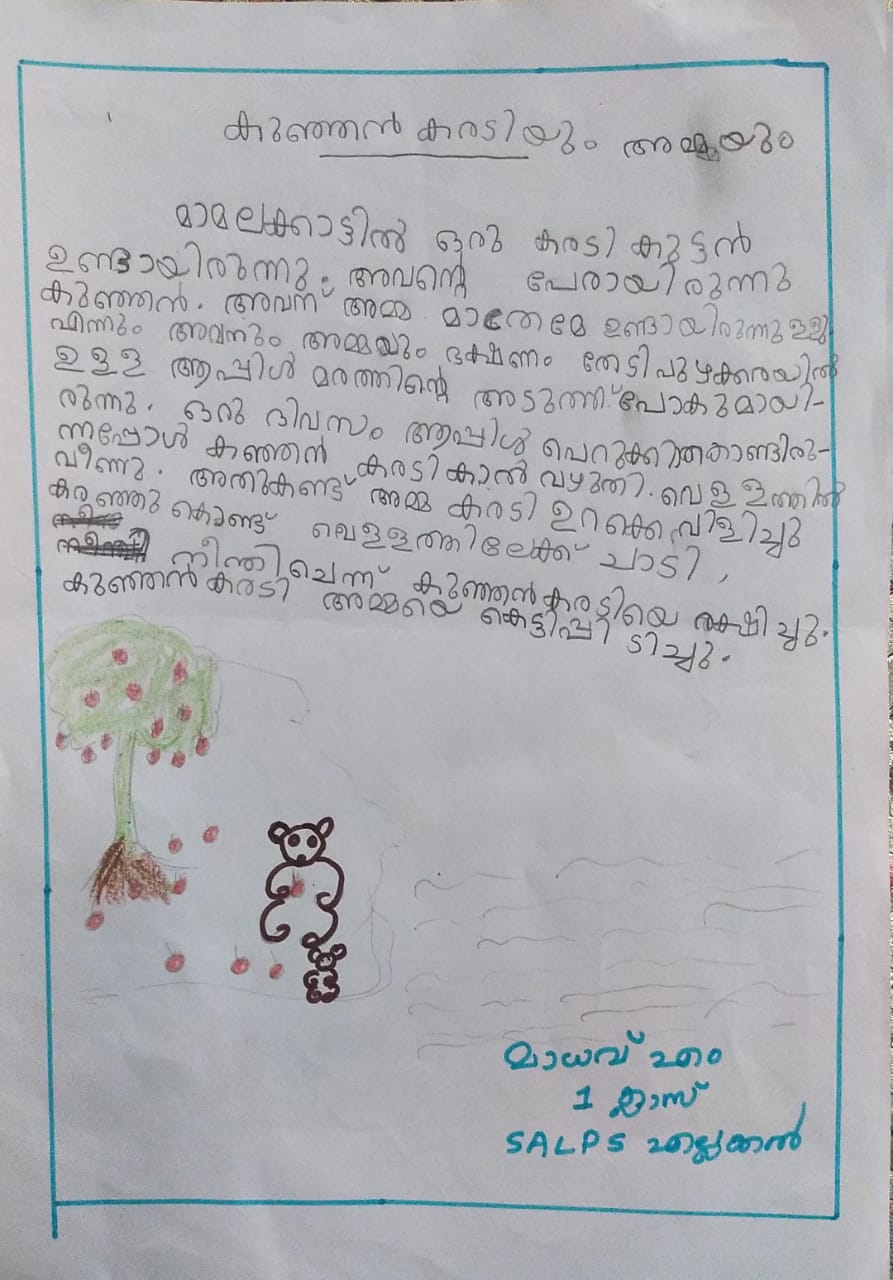 കുഞ്ഞൻ കരടിയും അമ്മയും
മാമലക്കാട്ടിൽ ഒരു കരടി കുട്ടൻ
ഉണ്ടായിരുന്നു. അവന്റെ പേരായിരുന്നു
കുഞ്ഞൻ. അവന് അമ്മ മാത്രമേ ഉണ്ടായിരുന്നുള്ളു
എന്നും അവനും അമ്മയും ഭക്ഷണം തേടി പുഴക്കരയിൽ
ഉള്ള ആപ്പിൾ മരത്തിന്റെ അടുത്ത് പോകുമായി-
രുന്നു. ഒരു ദിവസം ആപ്പിൾ പെറുക്കിക്കൊണ്ടിരു-
ന്നപ്പോൾ കുഞ്ഞൻ കരടി കാൽ വഴുതി. വെള്ളത്തിൽ
വീണു. അതുകണ്ട് അമ്മ കരടി ഉറക്കെ വിളിച്ചു
കരഞ്ഞു കൊണ്ട് വെള്ളത്തിലേക്ക് ചാടി,
നീന്തി ചെന്ന് കുഞ്ഞൻ കരടിയെ രക്ഷിച്ചു.
കുഞ്ഞൻ കരടി അമ്മയെ കെട്ടിപ്പിടിച്ചു.
മാധവ് എം
1 ക്ലാസ്
SALPS